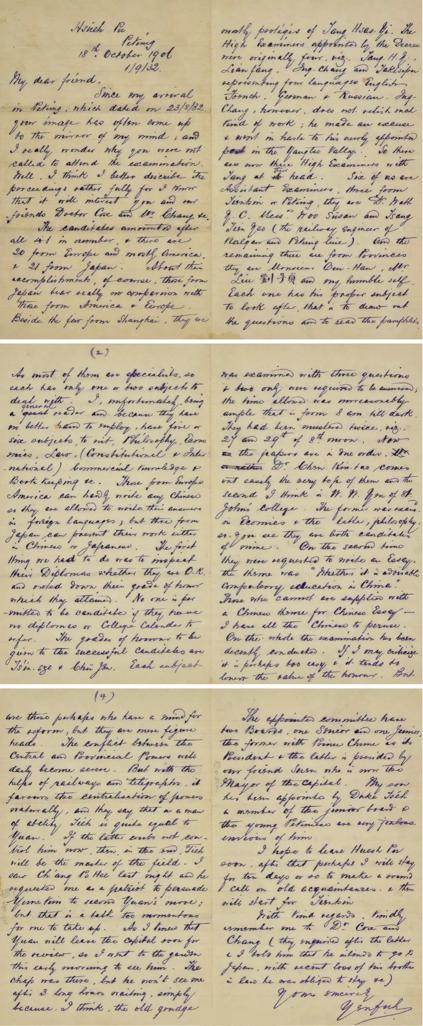 Hsueh Pu
Peking
18th October 1906
1/9/32.
My dear friend,
Since my arrival
in Peking, which dated on 23/8/32
your image has often come up
to the mirror of my mind, and
I really wonder why you were not
called to attend the examination.
Well, I think I better describe the
proceedings rather fully for I know
that it will interest you and our
friends Doctor Cox and Mr. Chang &c.
The candidates amounted after
all 41 in number & there are
20 from Europe and mostly America,
& 21 from Japan. About their
accomplishment, of course, those from
Japan bear really no comparison with
those from America & Europe.
Beside the few from Shanghai, they are
mostly protégés of Tang Hsao Yi. The
High Examiners appointed by the Decree
were originally four, viz. Tang H. Y.
Lien fang, Ing chang and
representing four languages English,
French, German & Russian. Ing-
Chang, however, does not relish such
kind of work; he made an excuse
& went in haste to his newly appointed
post in the Yangtse Valley. So there
are now three High Examiners with
Tang at its head. Six of us are
Assistant Examiners, three from
Tientsin or Peking, they are
Woo Susan and Tsang
Tien Yao (the railway engineer of
Kalgan and Peking line). And the
remaining three are from Provinces
they are Monsieur Ou-Han, Mr.
Liu and my humble self.
Each one has his proper subject
to look after, that is to draw out
the questions and to read the pamphlets.
(2)
As most of them are specialists, so
each has only one or two subjects to
deal with. I, unfortunately, being
a general reader and because they have
no better hand to employ, have five or
six subjects to suit. Philosophy, Econo
mics, Law (Constitutional & Inter
national) Commercial Knowledge &
Book Keeping &c. Those from Europe
America can hardly write any Chinese
so they are allowed to write their answers
in foreign languages; but those from
Japan can present their work either
in Chinese or Japanese. The first
thing we had to do was to inspect
their Diplomas whether they are O.K.
and noted down their grade of honour
which they attained. No one is per-
mitted to be candidate if they have
no diplomas or College Calendar to
refer. The grades of honours to be
given to the successful candidates are
Tsin-sze & Chü Jen. Each subject
was examined with three questions
& two only were required to be answered,
the time allowed was unreasonably
ample that is from 8 a.m. till dark.
They had been mustered twice, viz.
27 and 29th of 8th moon. Now
the papers are in one order.
Dr. Chen Kin tao, comes
out easily the very top of them and the
second I think is W. W. Yen of St.
John's College. The former was exam.
on Ecomics & the latter, philosophy.
so you see they are both candidates
of mine. On the second time
they were requested to write an Essay,
the theme was "Whether it is advisable,
Compulsory education in China".
Those who cannot are supplied with
a Chinese theme for Chinese Essay —
I have all the Chinese to peruse.
On the whole the examination has been
decently conducted. If I may criticize
it is perhaps too easy & it tends to
lower the value of the honour. But
(4)
are those perhaps who have a mind for
the reform, but they are mere figure
heads. The conflict between the
Central and Provincial Powers will
daily become severe. But with the
helps of railways and telegraphs, it
favours the centralisation of powers
naturally, and they say that as a man
of ability Tieh is quite equal to
Yuan. If the latter could not con-
trol him now, then, in the end, Tieh
will be the master of the field. I
saw Chang Pi Hee last night and he
requested me as a patriot to persuade
to second Yuan's move;
but that is a task too momentous
for me to take up. As I knew that
Yuan will leave the Capital soon for
the review, so I went to the garden
this early morning to see him. The
chap was there, but he won't see me
after 3 long hours waiting, simply
because, I think, the old grudge
The appointed committee have
two Boards, one Senior and one Junior,
the former with Prince Ching as its
President & the latter is presided by
our friend Suen who is now the
Mayor of the Capital. My son
has been appointed by Duke Tseh
a member of the junior board &
the young Pekinese are very jealous
envious of him.
I hope to leave Hsueh Pu
soon, after that perhaps I will stay
for ten days or so to make a round
call on old acquaintances, & then
will start for Tientsin
With kind regards, kindly
remember me to Dr. Cox and
Chang (they inquired after the latter
& I told him that he intends to go to
Japan, with recent loss of his brother
in law he was obliged to stay &c)
Yours sincerely
Yenfuh